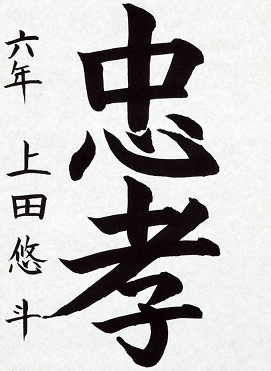 忠孝
六年 上田悠斗